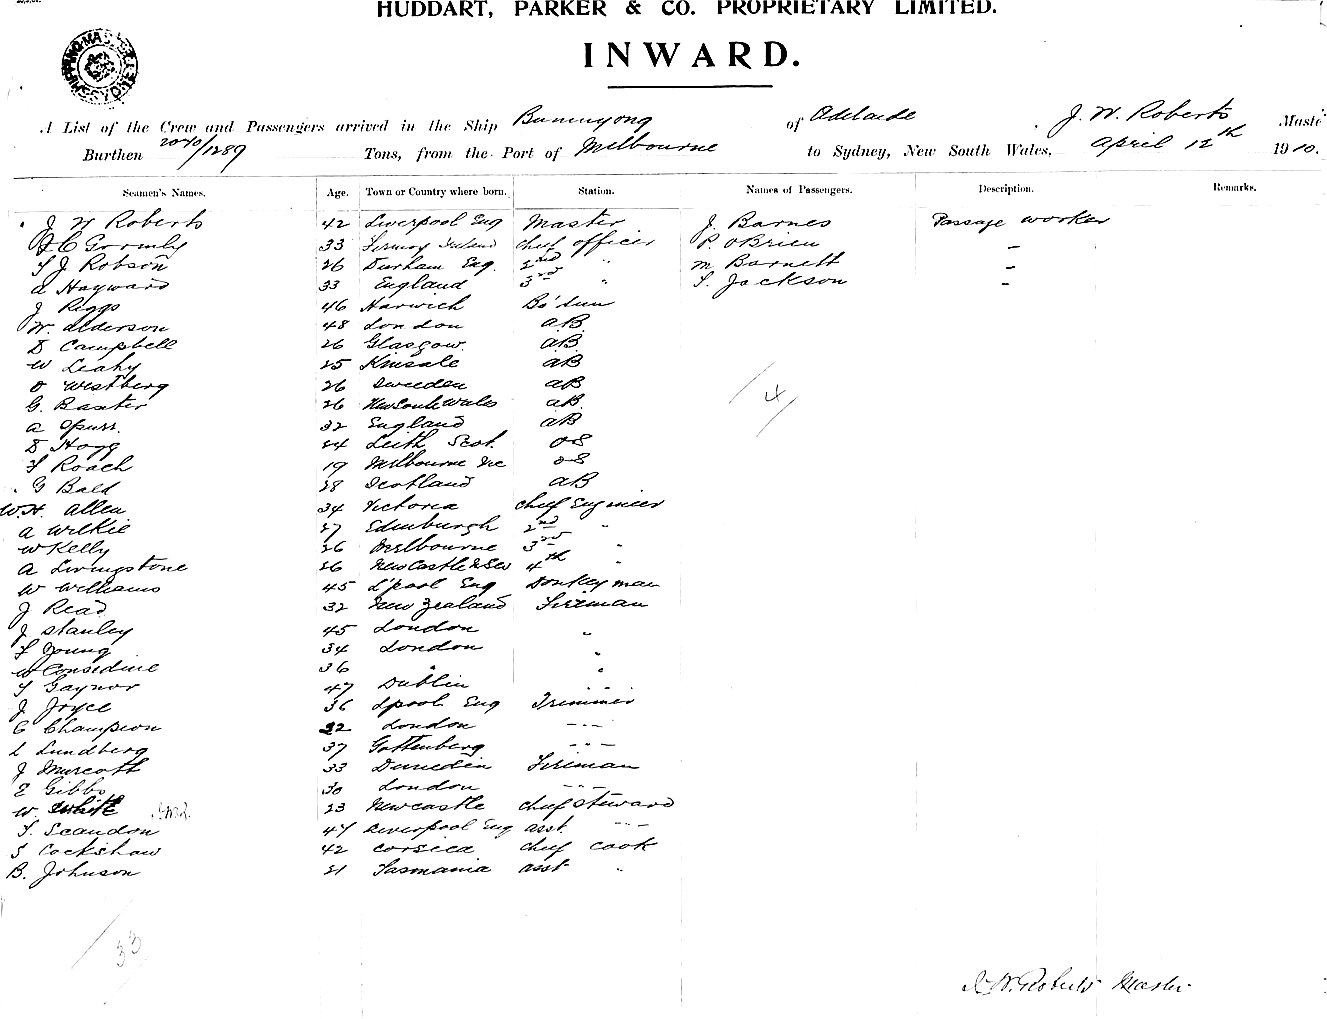 HUDDART, PARKER & CO. PROPRIETARY LIMITED.
INWARD.
A List of the Crew and Passengers arrived in the Ship Buninyong of Adelaide, J. W. Roberts Maste
Burthen 2070/1289 Tons, from the Port of Melbourne to Sydney, New South Wales, April 12th 1910.
Seamen's Names. Age. Town or Country where born. Station. Names of Passengers. Description. Remarks.
J W Roberts 42 Liverpool Eng Master J. Barnes Passage worker
C Gormly 33 Fermoy Ireland chief officer P. OBrien -
T J Robson 26 Durham Eng. 2nd " M Barnett -
A Hayward 33 England 3rd " T. Jackson -
J Riggs 46 Harwich Bo'sun
W. Alderson 48 London AB
D Campbell 26 Glasgow. AB
W Leahy 25 Kinsale AB
O Westberg 26 Sweeden AB
G. Baxter 26 New South Wales AB.
A 32 England AB
D Hogg 24 Leith Scot. OS
T Roach 19 Melbourne Vic OS
G Bald 28 Scotland AB
W.H. Allen 34 Victoria chief Engineer
A Wilkie 27 Edinburgh 2nd "
W Kelly 26 Melbourne 3rd "
A Livingstone 26 NewCastle NSW 4th "
W Williams 45 L'pool Eng Donkeyman
J Read 32 New Zealand Fireman
J Stanley 45 London "
T Young 34 London "
W Considine 36 " "
T Gaynor 47 Dublin " "
J Joyce 36 Lpool Eng Trimmer
C Champion 22 London - " -
L Lundberg 37 Gottenberg - " -
J Murcott 33 Dunedin Fireman
E Gibbs 30 London - " -
W. White 23 Newcastle chief steward
T. Scandon 47 Liverpool Eng asst. - " -
T Cockshaw 42 Corsica chief cook
B. Johnson 21 Tasmania asst "
4
33
J. W. Roberts Master